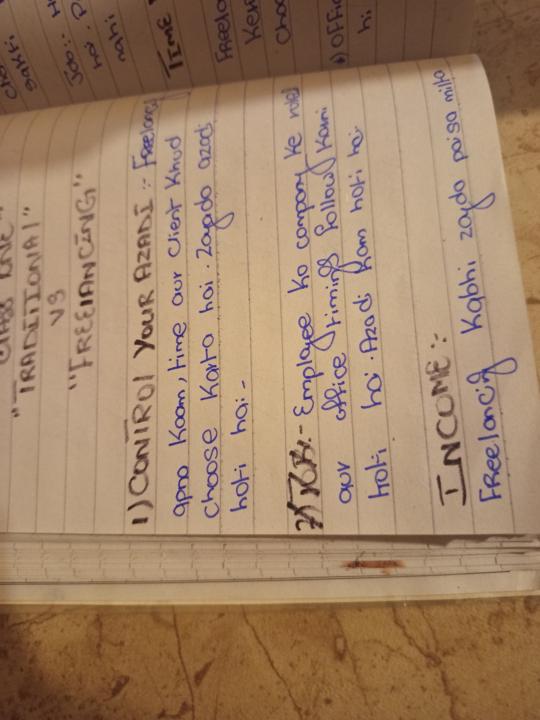 "TRADITIONAl"
VS
"FREElANCING"
1) CONTROl YOUR AZADI :- Freelancer
apna Kaam, time aur Client Khud
choose Karta hai. Zayada azadi
hoti hai -
JOB:- Employee Ko company Ke rules
aur office timing follow Karni
hoti hai. Azadi Kam hoti hai.
INCOME :-
Freelancing Kabhi zayda paisa milta
Job:-
nahi
TIME
hi